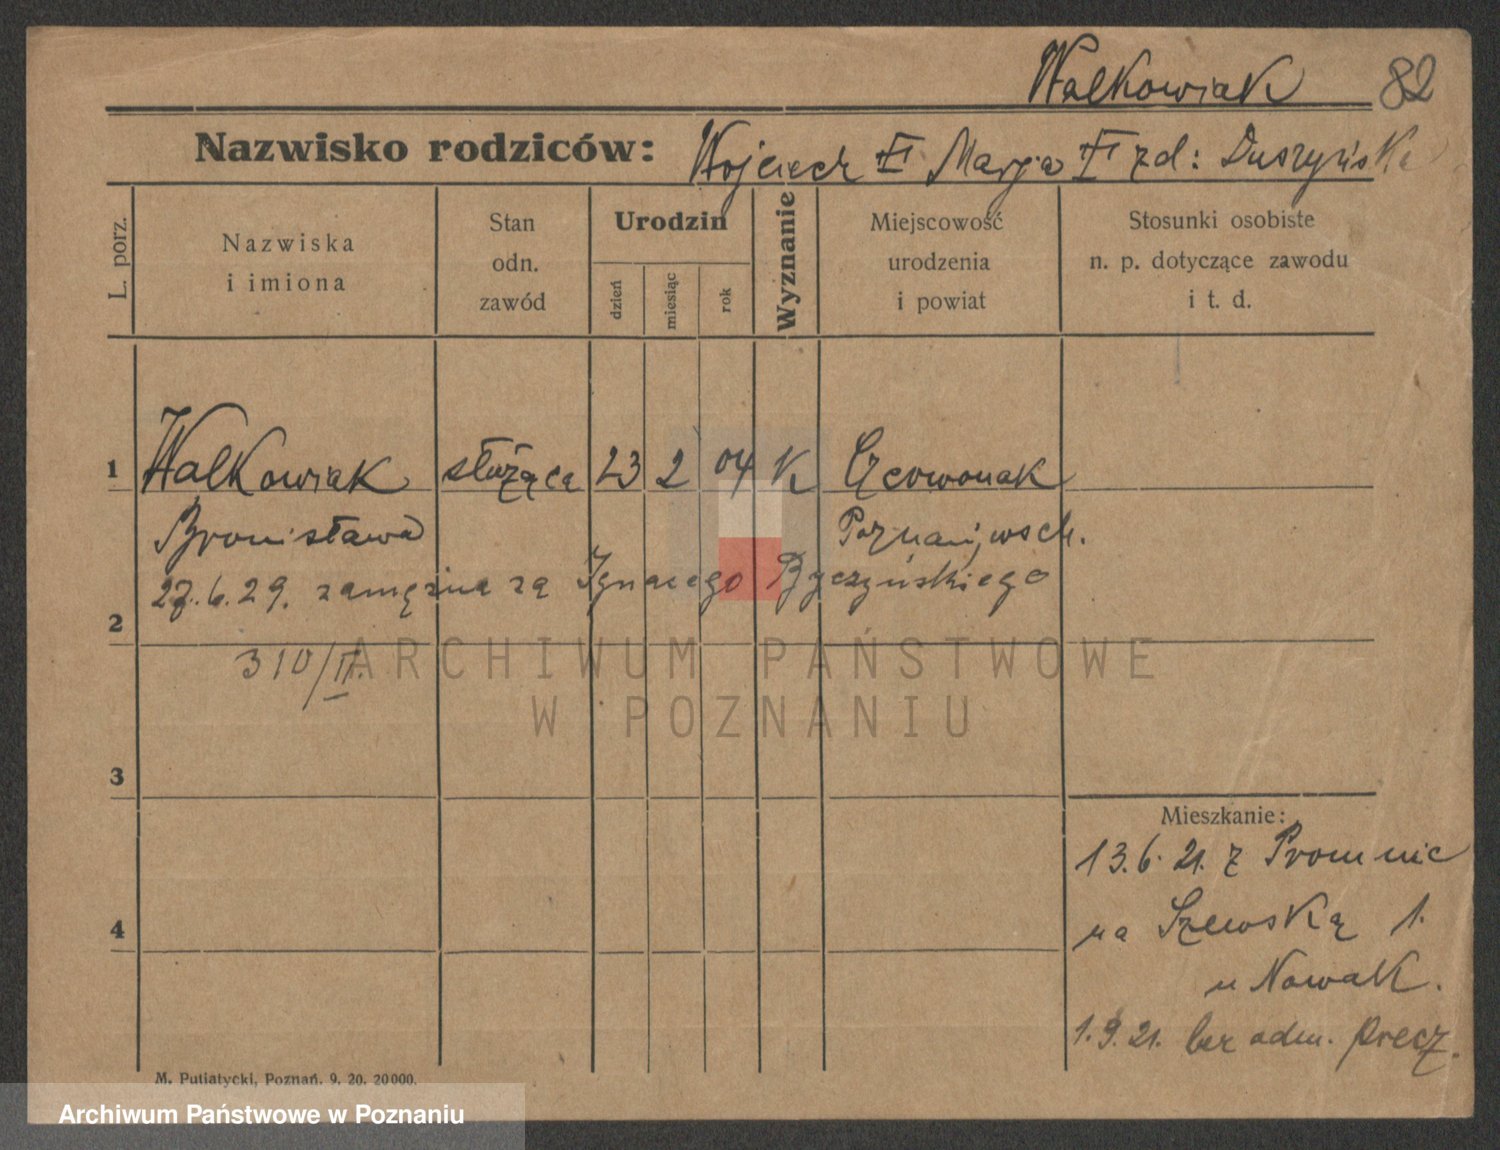 Walkowiak 82
Nazwisko rodziców: Wojciech Marja zd: Duszyńska
L. porz.
Nazwiska
i imiona
Stan
odn.
zawód
Urodzin
dzień
miesiąc
rok
Wyznanie
Miejscowość
urodzenia
i powiat
Stosunki osobiste
n. p. dotyczące zawodu
i t. d.
1 Walkowiak służąca 23 2 04 K Czerwonak
Bronisława Poznań wsch.
27.6.29. zamężna za Ignacego Byczyńskiego
2
310/II.
3
Mieszkanie:
13.6.21. z Promnic
4
na Szewską 1.
u Nowak.
1.9.21. bez adm. precz.
M. Putiatycki, Poznań. 9. 20. 20000.
ARCHIWUM PAŃSTWOWE
W POZNANIU
Archiwum Państwowe w Poznaniu